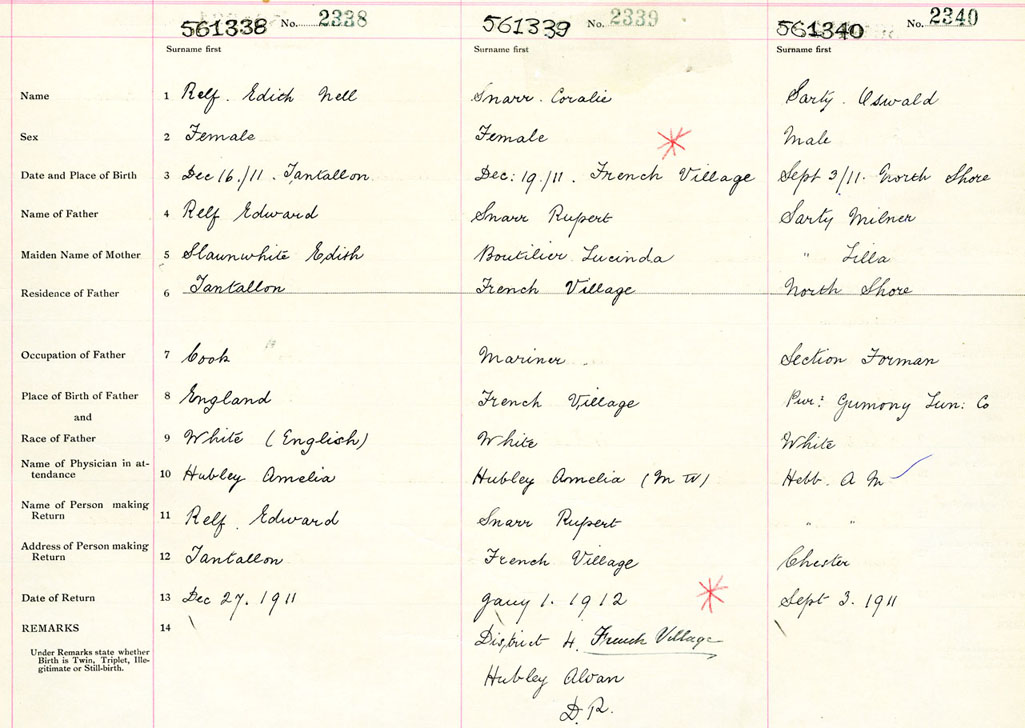 561338 No. 2338 561339 No. 2339 561340 No. 2340
Surname first Surname first Surname first
Name 1 Relf. Edith Nell Snarr. Coralie Sarty. Oswald
Sex 2 Female Female Male
Date and Place of Birth 3 Dec 16/11. Tantallon. Dec: 19/11. French Village Sept 3/11. North Shore
Name of Father 4 Relf Edward Snarr Rupert Sarty Milner
Maiden Name of Mother 5 Slaunwhite Edith Boutilier Lucinda " Lilla
Residence of Father 6 Tantallon French Village North Shore
Occupation of Father 7 Cook Mariner Section Forman
Place of Birth of Father 8 England French Village Gumony Lun: Co
and
Race of Father 9 White (English) White White
Name of Physician in at-
tendance 10 Hubley Amelia Hubley Amelia (M W) Hebb. A M
Name of Person making
Return 11 Relf. Edward Snarr Rupert " "
Address of Person making
Return 12 Tantallon French Village Chester
Date of Return 13 Dec 27. 1911 Jany 1. 1912 Sept 3. 1911
REMARKS 14
Under Remarks state whether
Birth is Twin, Triplet, Ille-
gitimate or Still-birth.
District 4. French Village
Hubley Alvan
D.R.